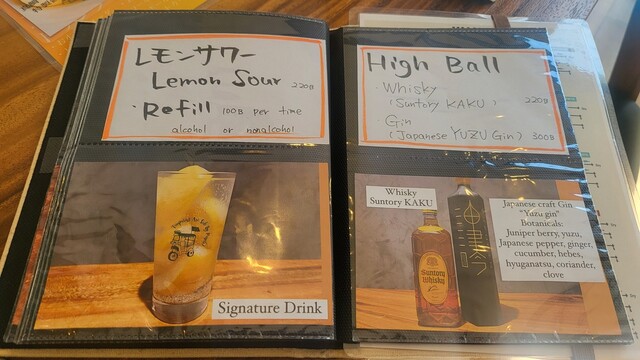 レモンサワー
Lemon Sour 220฿
・Refill 100฿ per time
alcohol or nonalcohol
Signature Drink
High Ball
・Whisky
(Suntory KAKU) 220฿
・Gin
(Japanese YUZU Gin) 300฿
Whisky
Suntory KAKU
Suntory
Whisky
Japanese craft Gin
"Yuzu gin"
Botanicals:
Juniper berry, yuzu,
Japanese pepper, ginger,
cucumber, hebes,
hyuganatsu, coriander,
clove